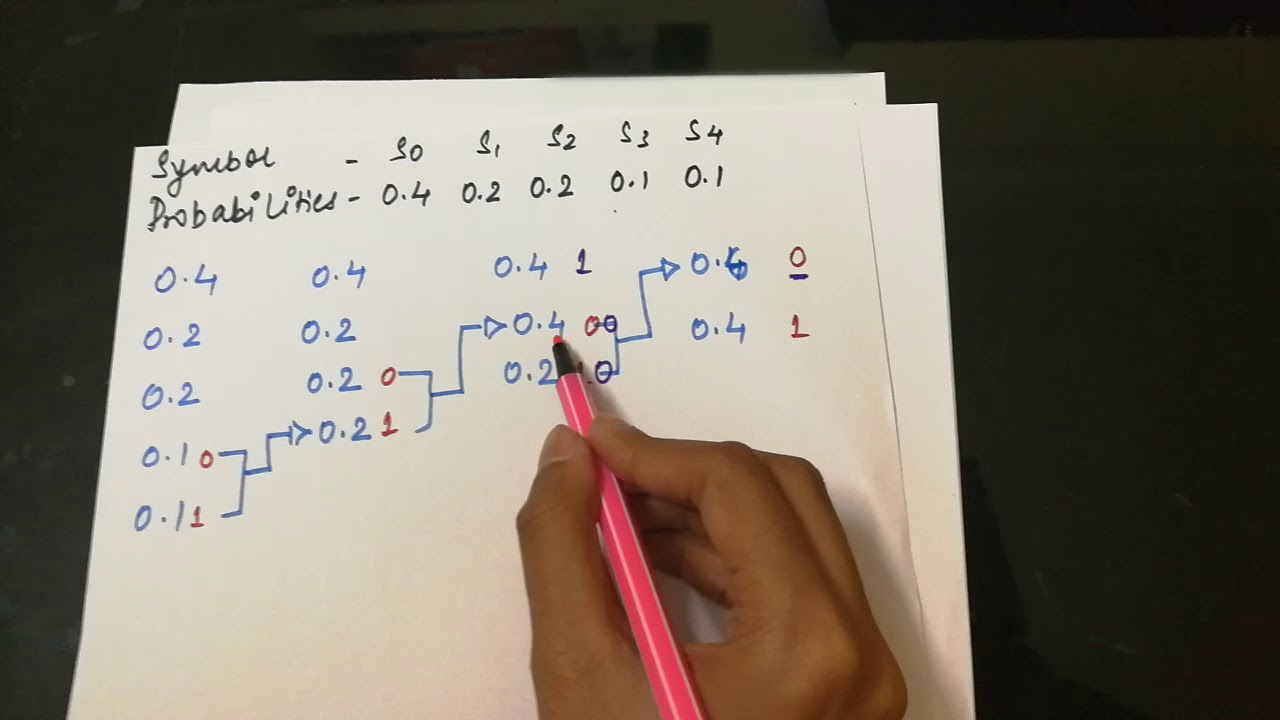 Symbol - S0 S1 S2 S3 S4
Probabilities - 0.4 0.2 0.2 0.1 0.1
0.4 0.4 0.4 1 0.6 0
0.2 0.2 0.4 00 0.4 1
0.2 0.2 0 0.2 10
0.1 0 0.2 1
0.1 1